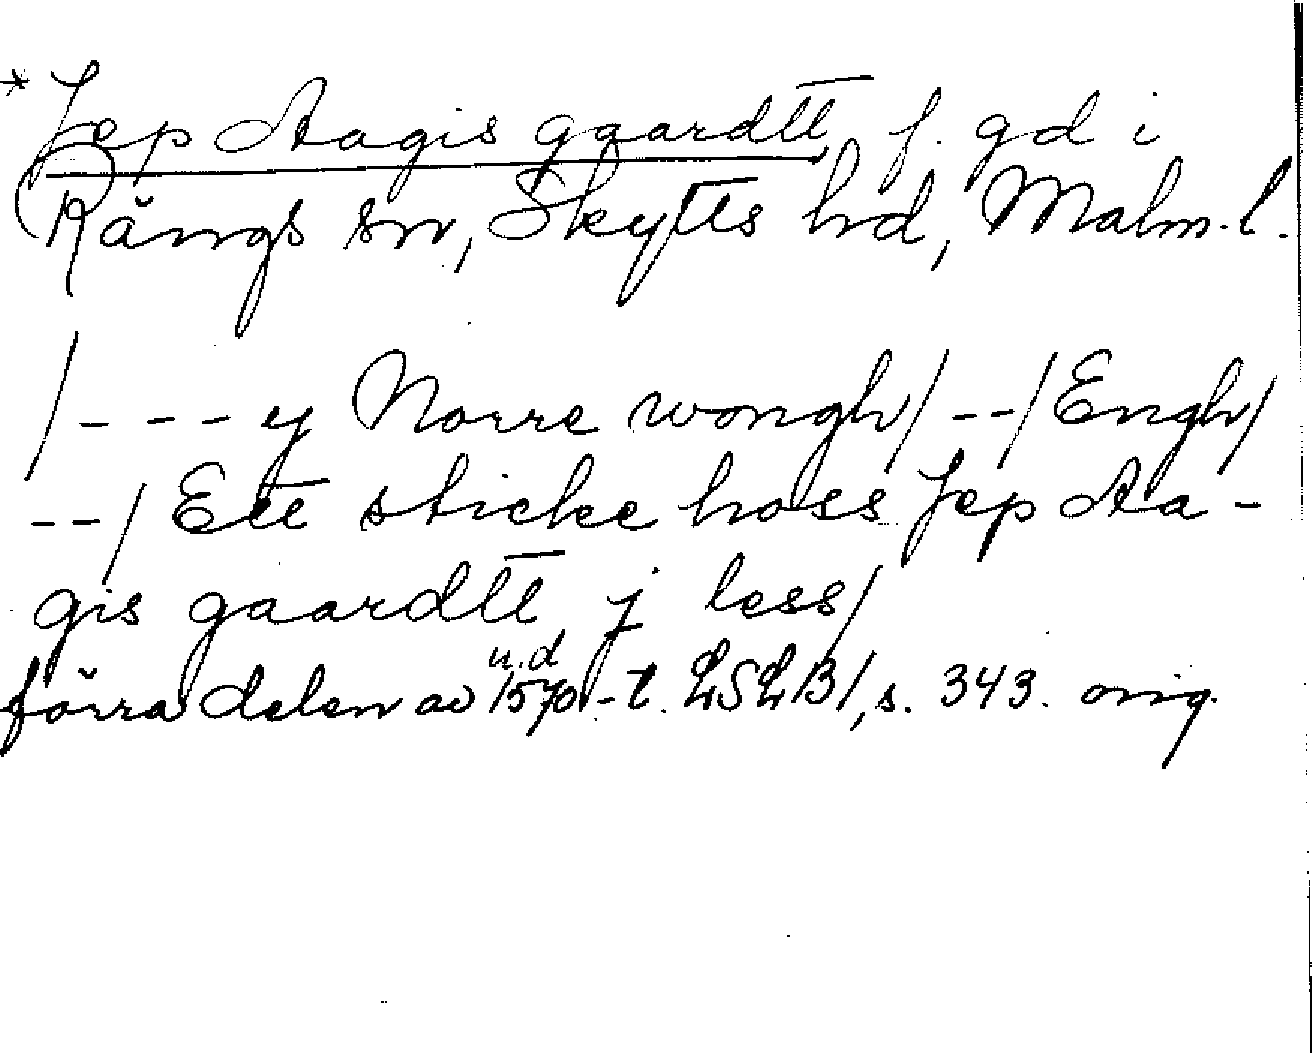 * Jep Aagis gaardtt, f. gd i
Rängs sn, Skytts hd, Malm. l.
/ - - - y Norre wongh / - - / Engh /
- - / Ett sticke hoss Jep Aa-
gis gaardtt j less /
u.d
förra delen av 1570-t. LSLB1, s. 343. orig.